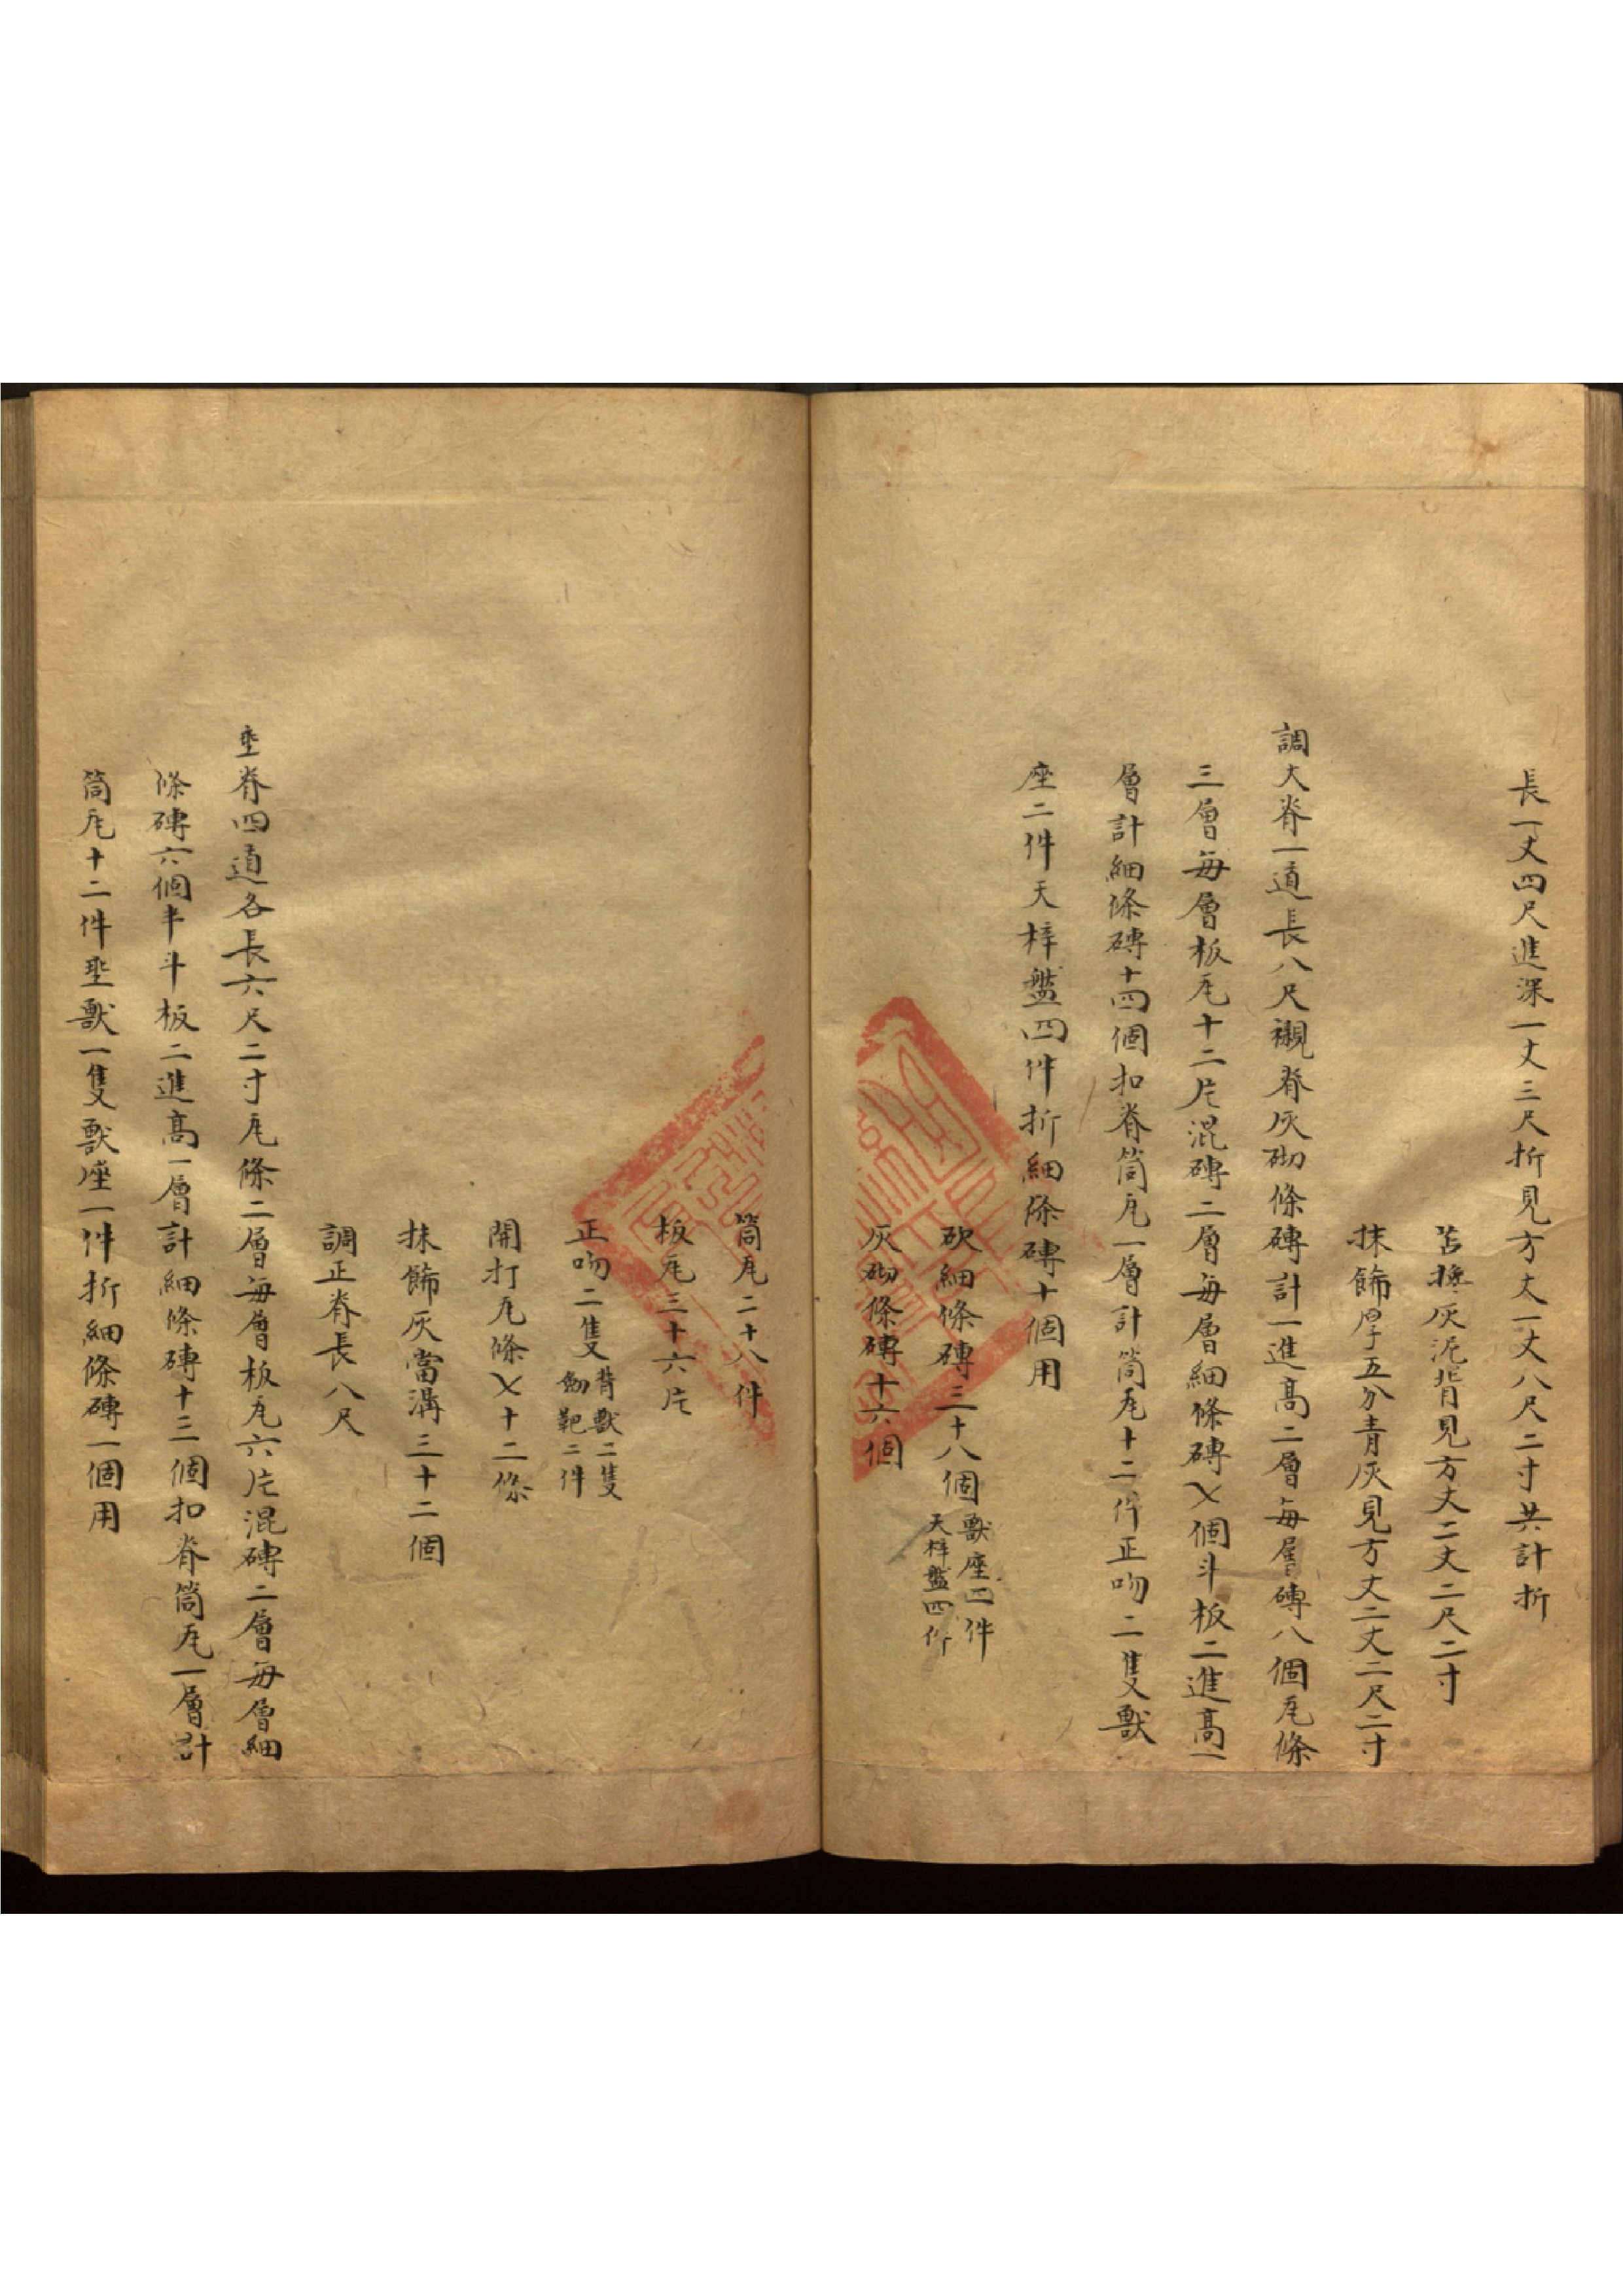 長一丈四尺進深一丈三尺折見方丈一丈八尺二寸共計折
苫撡灰泥背見方丈二丈二尺二寸
抹飾厚五分青灰見方丈二丈二尺二寸
調大脊一道長八尺襯脊灰砌條磚計一進高二層每層磚八個瓦條
三層每層板瓦十二片混磚二層每層細條磚乂個斗板二進高一
層計細條磚十四個扣脊筒瓦一層計筒瓦十二件正吻二隻獸
座二件天梓盤四件折細條磚十個用
砍細條磚三十八個獸座四件
天梓盤四件
灰砌條磚十六個
筒瓦二十八件
板瓦三十六片
正吻二隻背獸二隻
劎靶二件
開打瓦條乂十二條
抹飾灰當溝三十二個
調正脊長八尺
垂脊四道各長六尺二寸瓦條二層每層板瓦六片混磚二層每層細
條磚六個半斗板二進高一層計細條磚十三個扣脊筒瓦一層計
筒瓦十二件垂獸一隻獸座一件折細條磚一個用